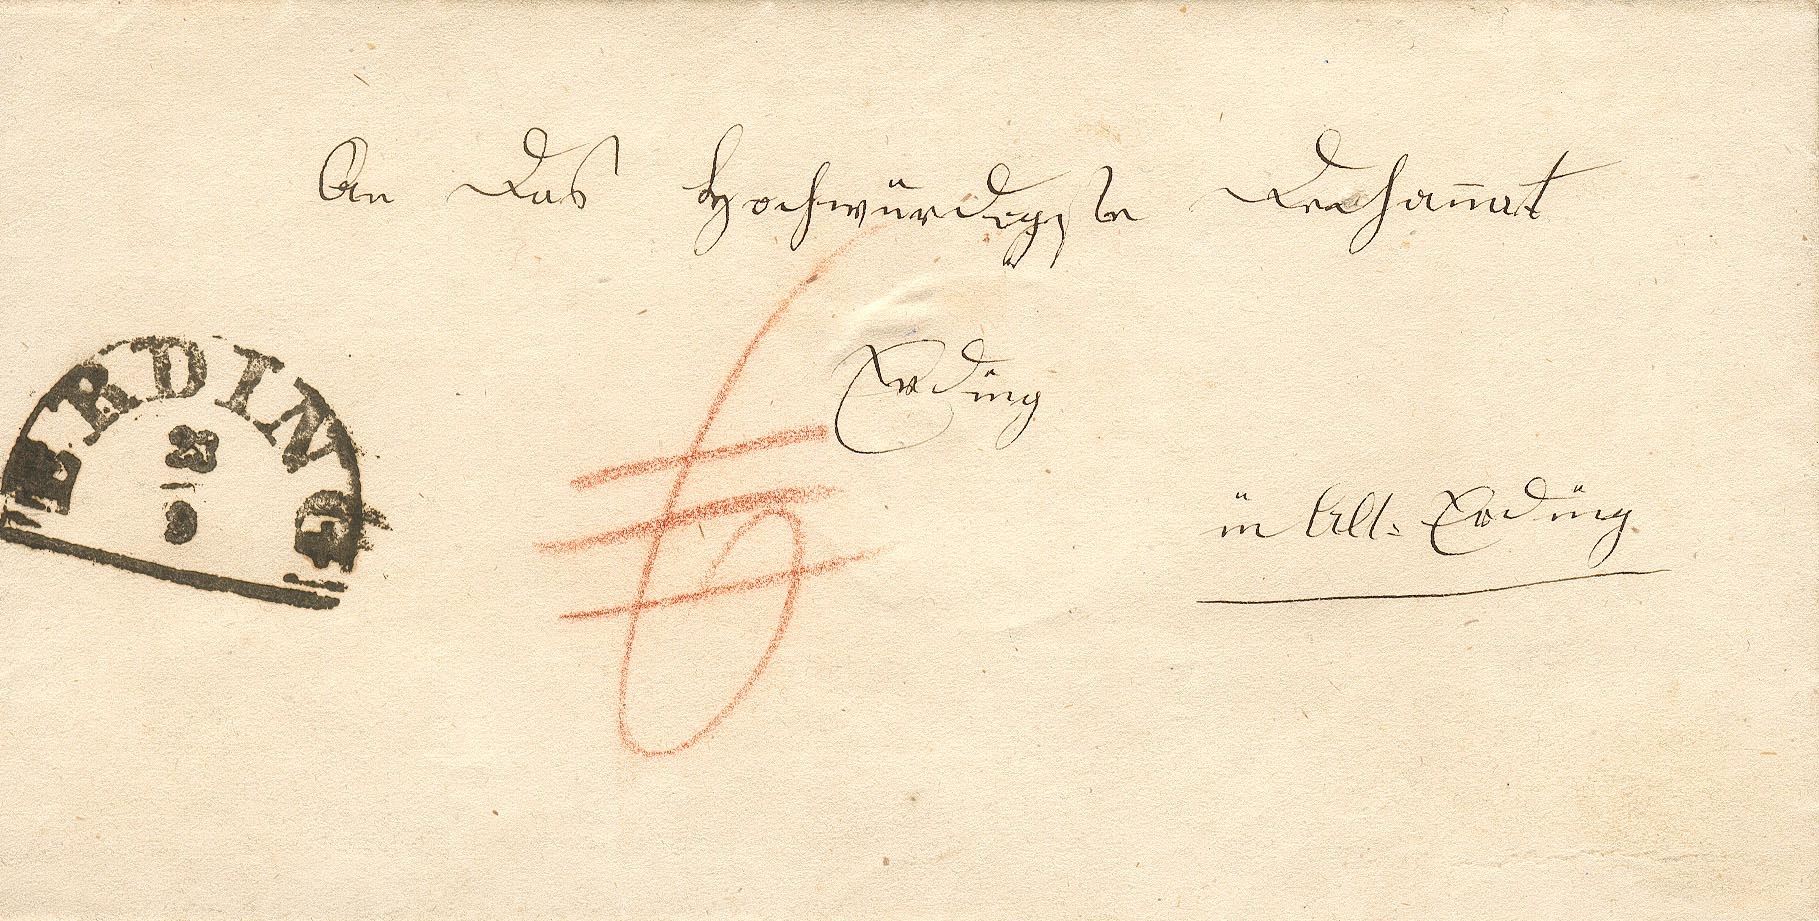 An das Hochwürdigste Dechanat
Erding
in Alt-Erding
ERDING
6